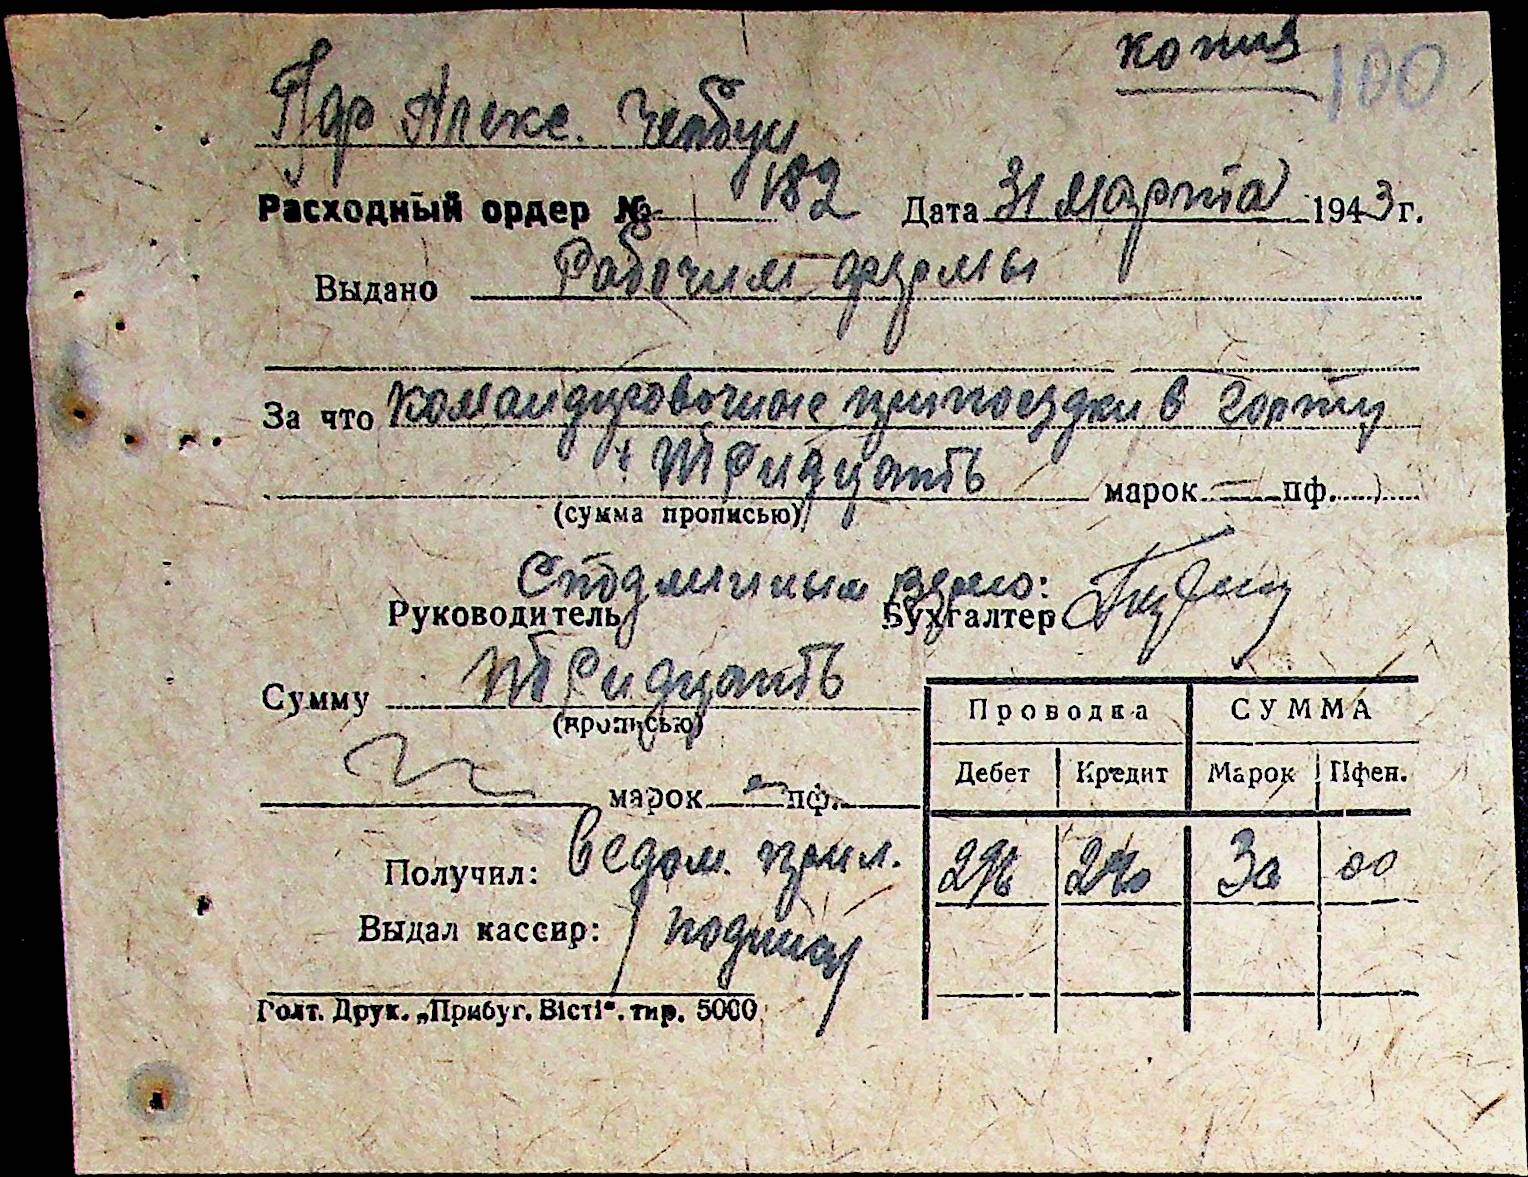 копия 100
Алекс.
Расходный ордер № 182 Дата 31 марта 1943 г.
Выдано Рабочим фермы
За что командировочные при поездки в Голту
Тридцать марок — пф.
(сумма прописью)
С подлинным верно:
Руководитель Бухгалтер
Сумму Тридцать
(прописью)
марок — пф.
Проводка СУММА
Дебет Кредит Марок Пфен.
30 00
Получил: ведом. прил.
Выдал кассир: подпись
Голт. Друк. „Прибуг. Вісті“. тир. 5000